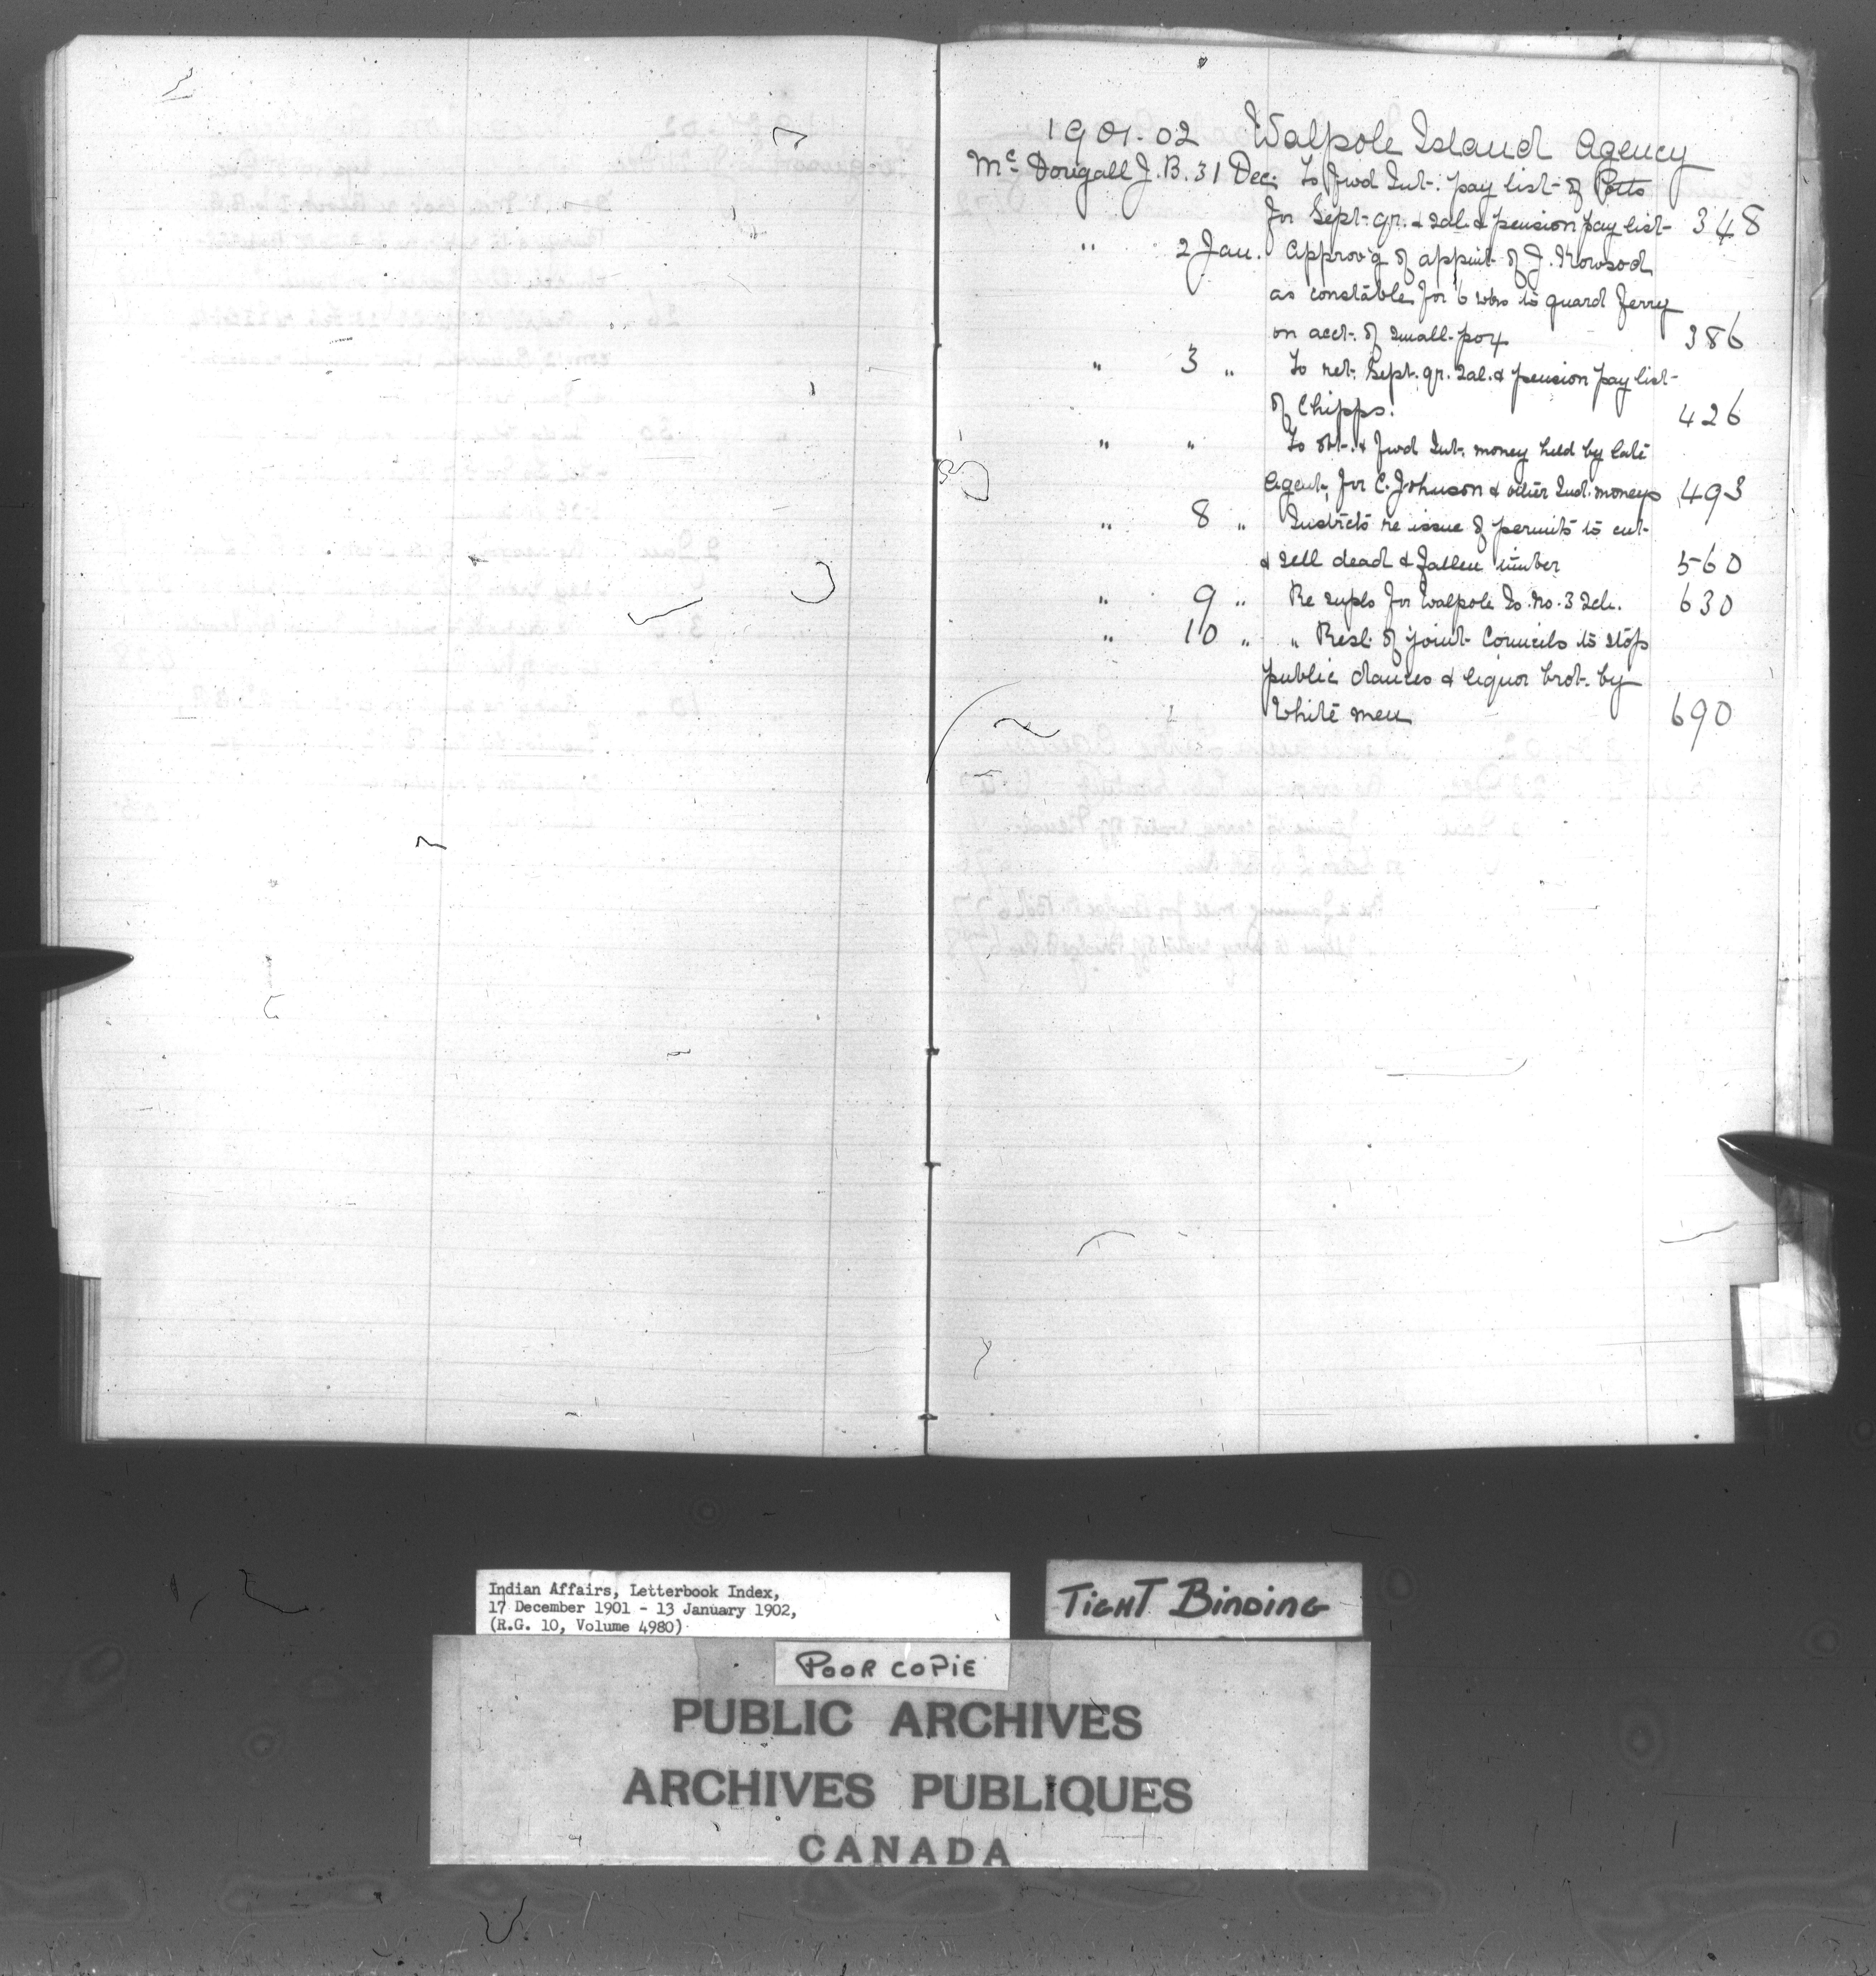 1901-02 Walpole Island Agency
McDougall J.B. 31 Dec. To fwd Int. pay list of Potts
for Sept. qr. & sal. & pension pay list 348
" 2 Jan. Approv'g of appint of J.
as constable for 6 wks to guard Jerry
on acct. of small-pox 386
" 3 " To ret. Sept. qr. Sal. & pension pay list
of Chipps. 426
" " To obt. & fwd Int. money held by late
Agent, for C. Johnson & other Ind. moneys 493
" 8 " Instrcts re issue of permits to cut
& sell dead & fallen timber 560
" 9 " Re supls for Walpole Is. No. 3 Sch. 630
" 10 " " Resl. of joint Councils to stop
public dances & liquor brot. by
White men 690
Indian Affairs, Letterbook Index,
17 December 1901 - 13 January 1902,
(R.G. 10, Volume 4980)
TIGHT BINDING
POOR COPIE
PUBLIC ARCHIVES
ARCHIVES PUBLIQUES
CANADA